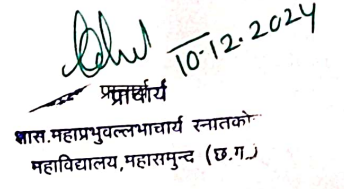 10-12-2024
प्राचार्य
शास.महाप्रभुवल्लभाचार्य स्नातको
महाविद्यालय,महासमुन्द (छ.ग.)